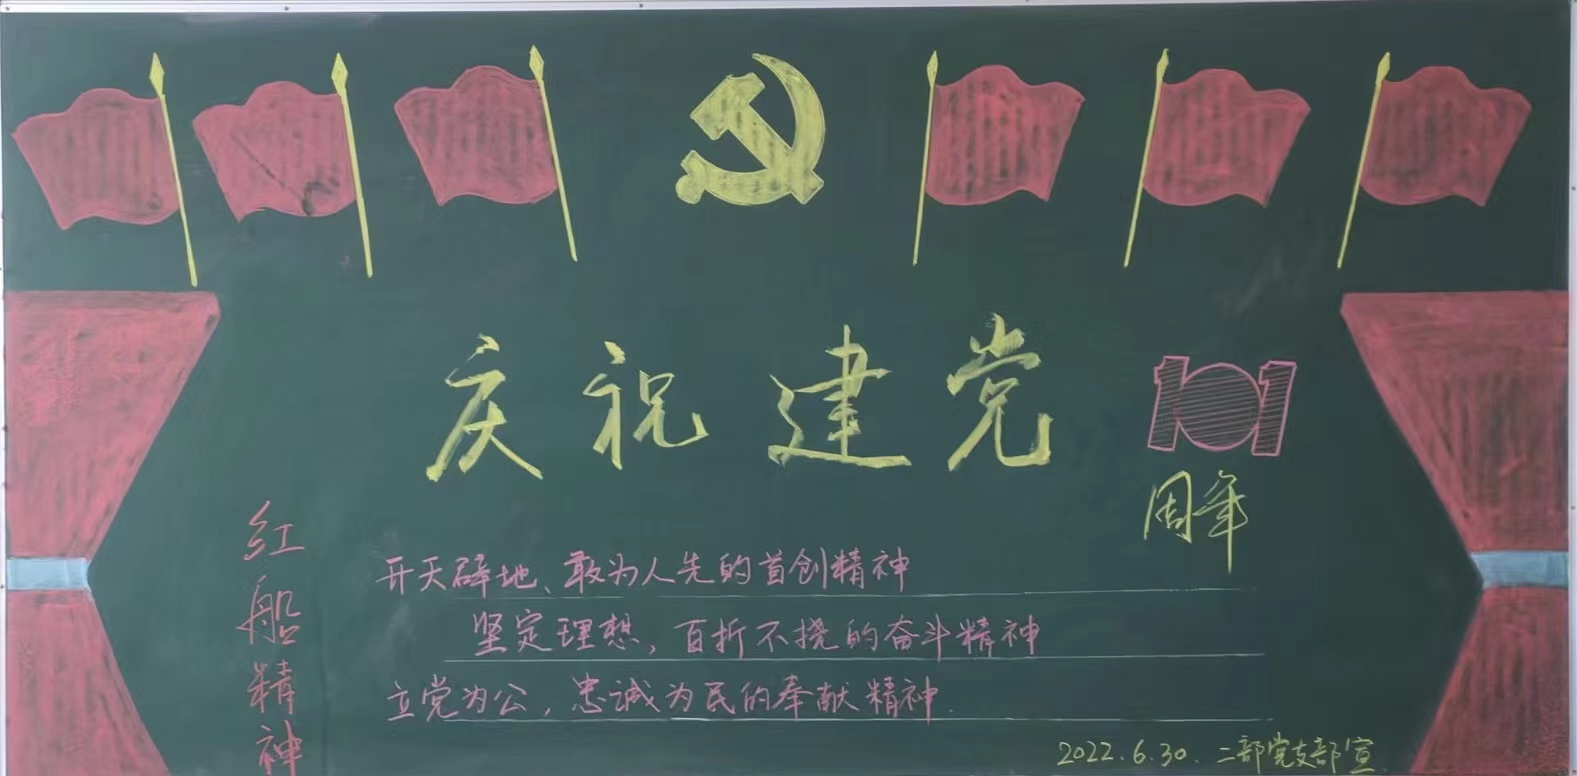 庆祝建党101
周年
红船精神
开天辟地、敢为人先的首创精神
坚定理想，百折不挠的奋斗精神
立党为公，忠诚为民的奉献精神.
2022.6.30. 二部党支部宣